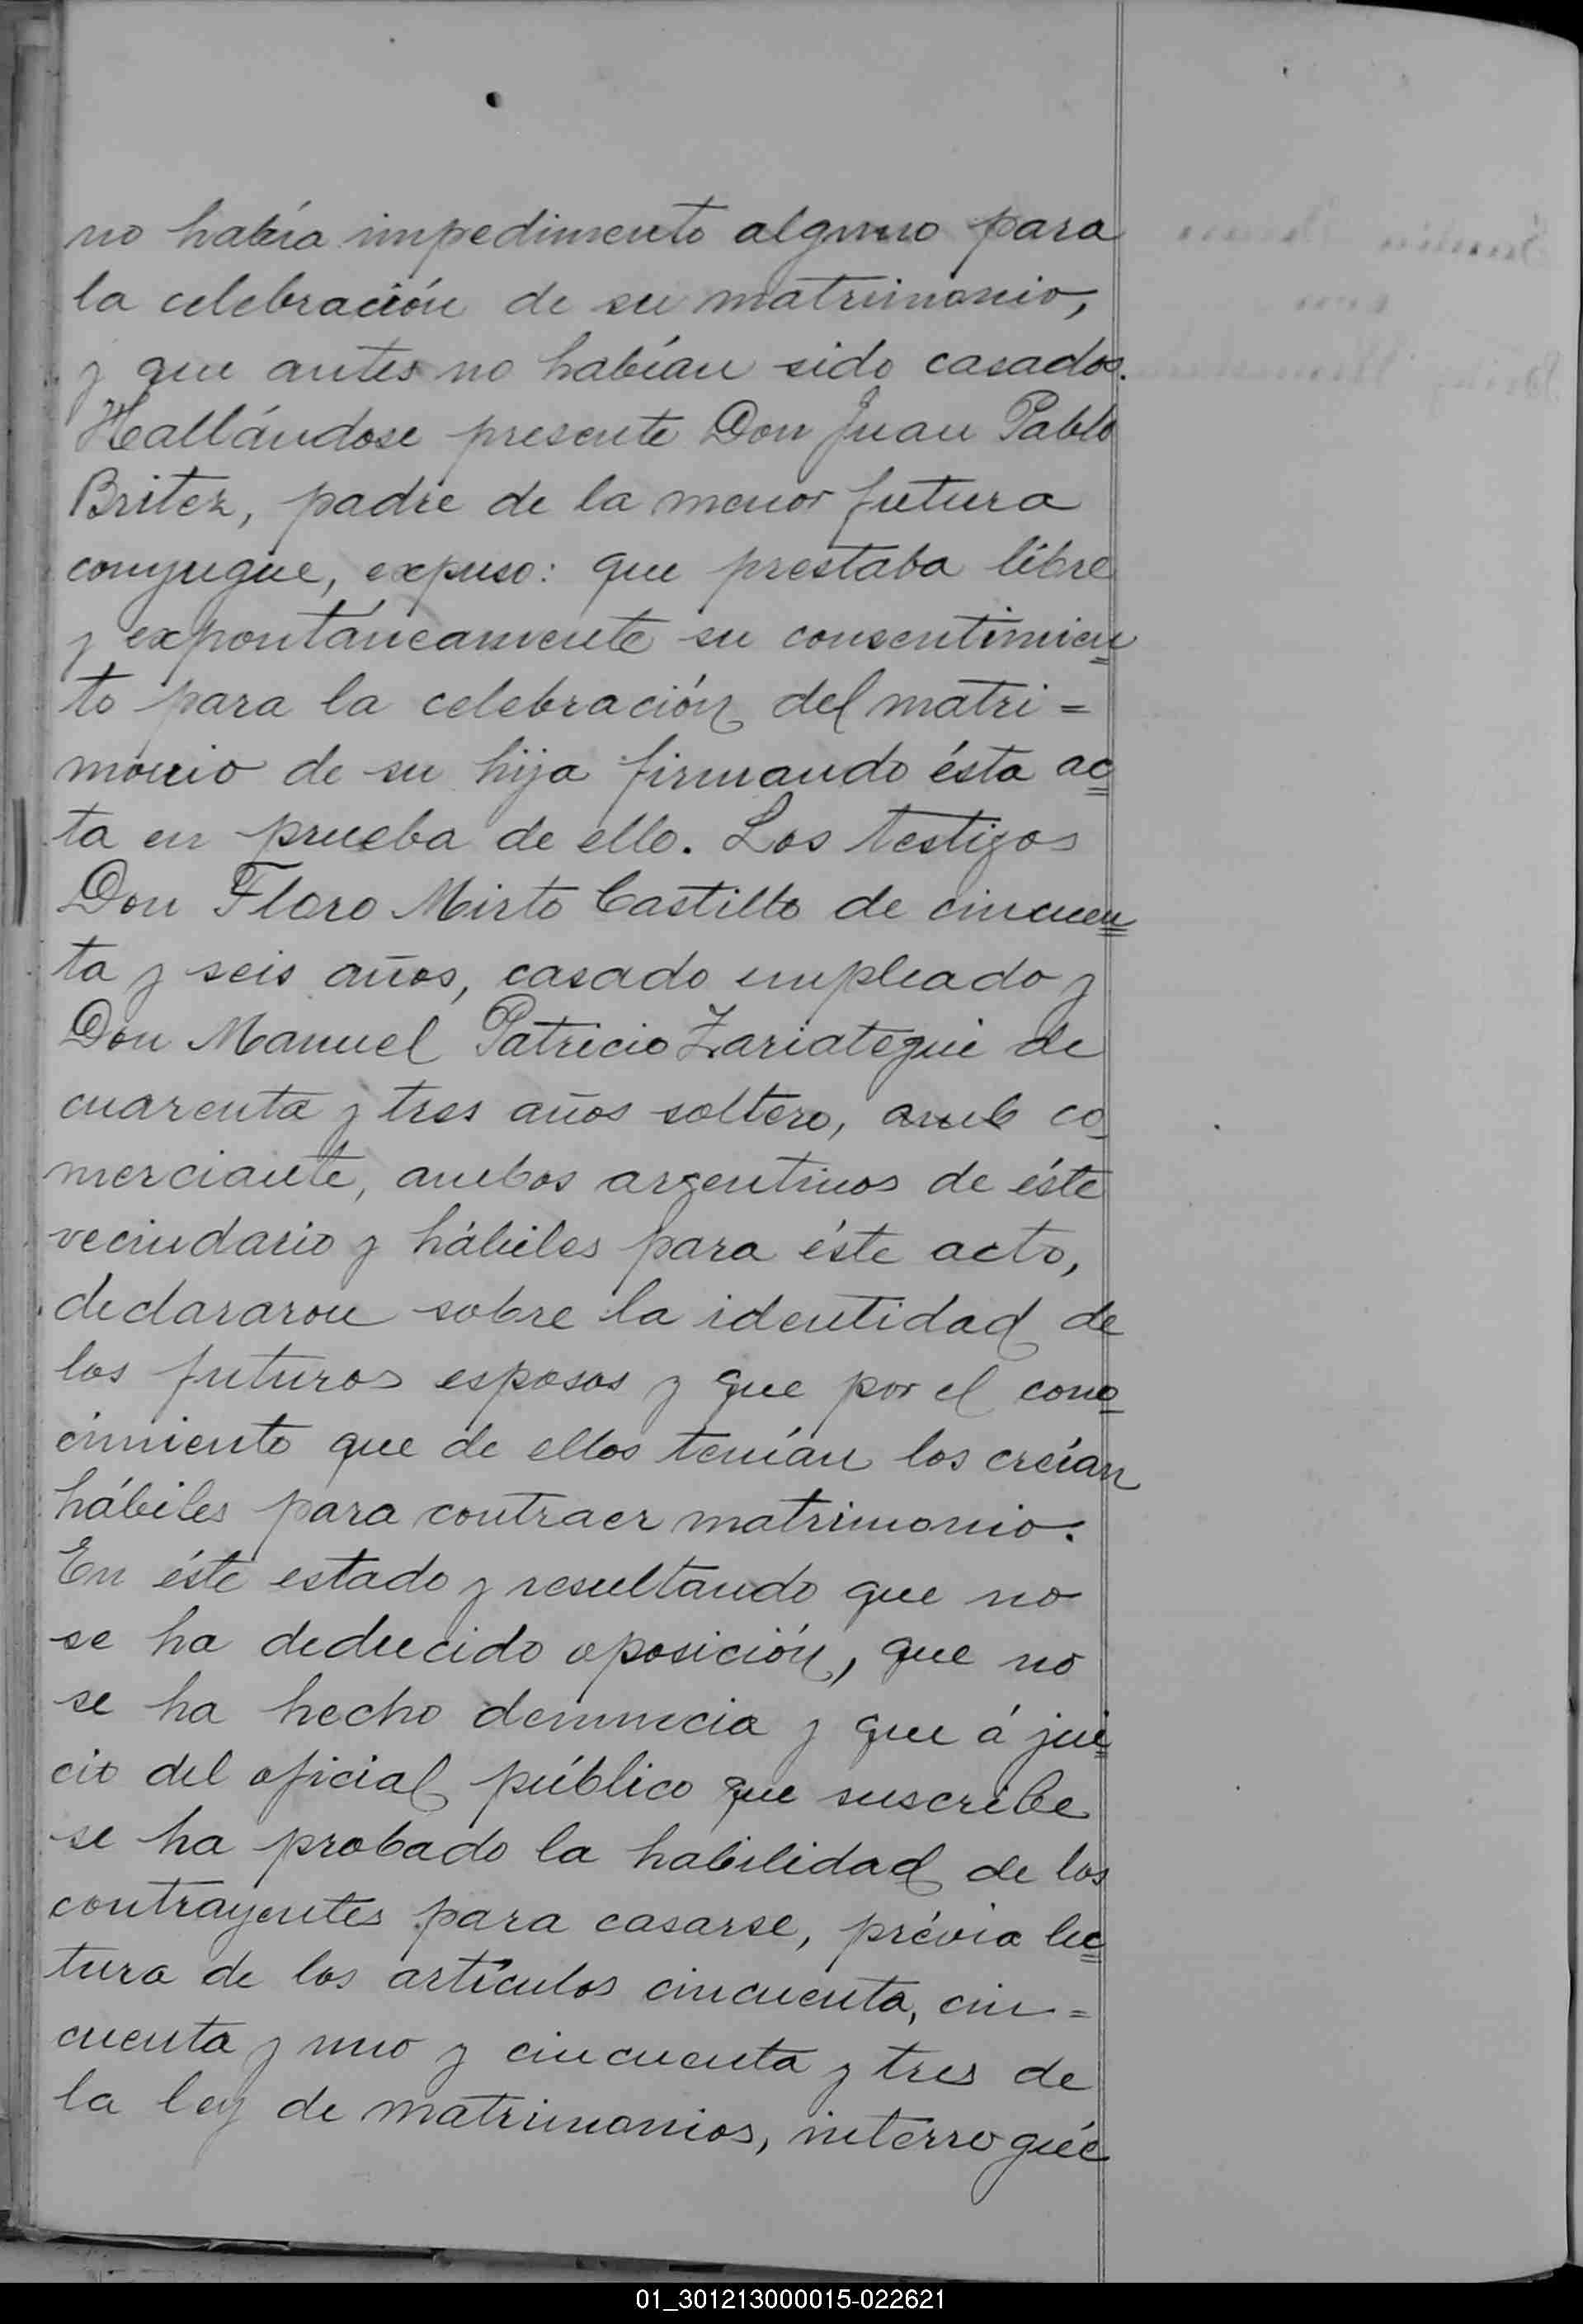 no había impedimento alguno para
la celebración de su matrimonio,
y que antes no habían sido casados.
Hallándose presente Don Juan Pablo
Britez, padre de la menor futura
conyugue, expuso: que prestaba libre
y expontáneamente su consentimien=
to para la celebración del matri=
monio de su hija firmando ésta ac=
ta en prueba de ello. Los testigos
Don Floro Mirto Castillo de cincuen=
ta y seis años, casado empleado y
Don Manuel Patricio Zariategui de
cuarenta y tres años soltero, amb co-
merciante, ambos argentinos de éste
vecindario y hábiles para éste acto,
declararon sobre la identidad de
los futuros esposos y que por el cono=
cimiento que de ellos tenían los creían
hábiles para contraer matrimonio.
En éste estado y resultando que no
se ha deducido oposición, que no
se ha hecho denuncia y que á jui=
cio del oficial público que suscribe
se ha probado la habilidad de los
contrayentes para casarse, prévia lec=
tura de los artículos cincuenta, cin=
cuenta y uno y cincuenta y tres de
la ley de matrimonios, interrogué
01_301213000015-022621